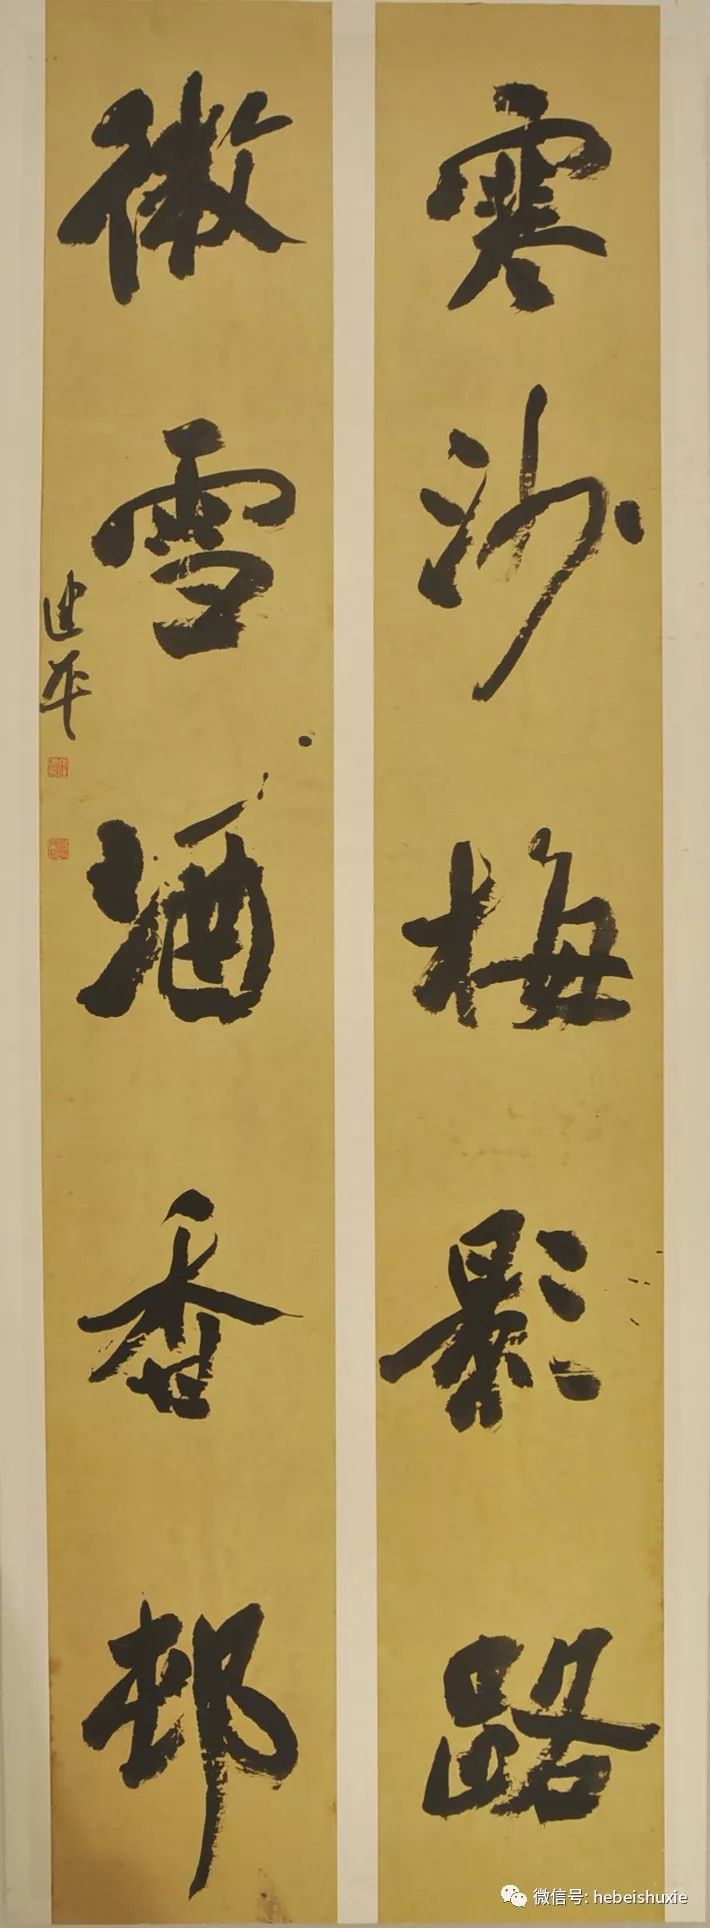 寒沙梅影路
微雪酒香邨
建平
微信号: hebeishuxie